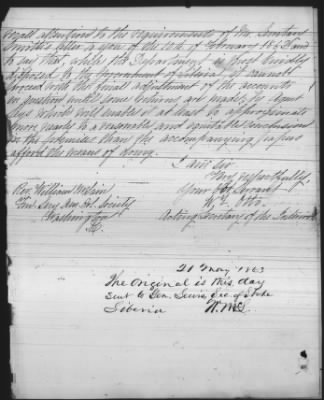 recall attention to the requirements of the Secretary
Smith's letter a year of the 12th of February 1862 and
to say that, while the Department is most kindly
disposed to the Government of Liberia, it cannot
proceed with the final adjustment of the accounts
in question until some returns are made, by Agent
Seys which will enable it at least to approximate
more nearly to a reasonable and equitable conclusion
in the premises than the accompanying papers
afford the means of doing.
I am Sir
Very respectfully,
Your Obt Servant
W. T. Otto
Acting Secretary of the Interior
Rev. William McLain
Fin. Secy Am. Col. Society
Washington
D.C.
21 May 1863
The Original is this day
sent to Gen. Lewis Sec of State
Liberia W. McL.